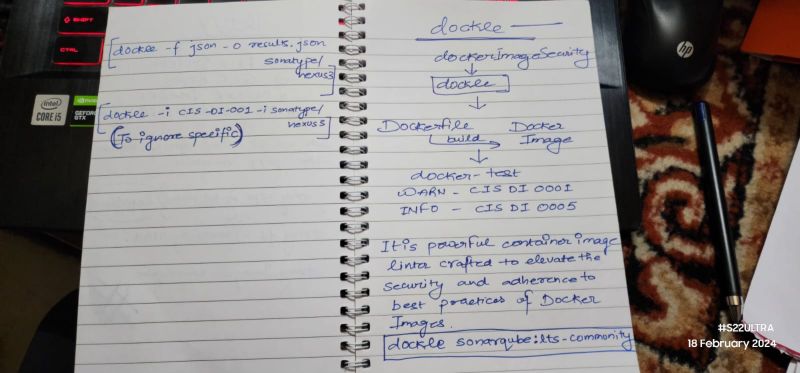 dockle -f json -o results.json
sonatype/
nexus3
dockle -i CIS-DI-001 -i sonatype/
nexus3
(To ignore specific)
dockle
dockerImageSecurity
dockle
Dockerfile build Docker
Image
docker-test
WARN - CIS DI 0001
INFO - CIS DI 0005
It is powerful container image
linter crafted to elevate the
security and adherence to
best practices of Docker
Images.
dockle sonarqube:lts-community
SHIFT
CTRL
intel
CORE i5
NVIDIA
GEFORCE
GTX
hp
#S22ULTRA
18 February 2024